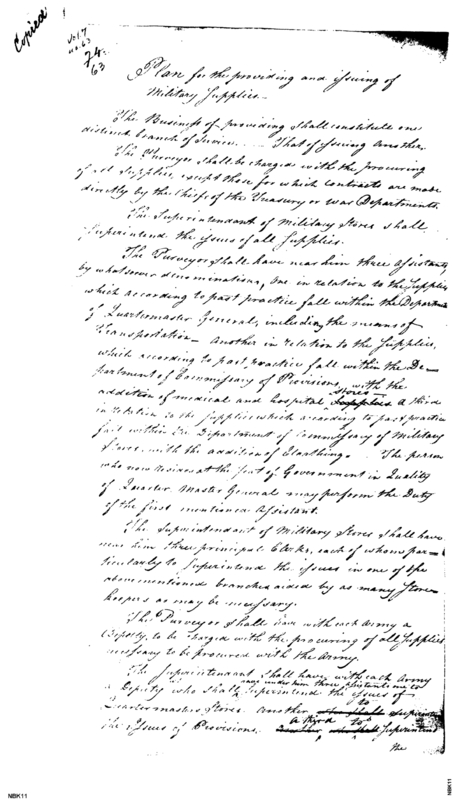 Copied
Vol 7
no. 63
74
63
Plan for the providing and issuing of
Military Supplies—
The Business of providing shall constitute one
distinct branch of Service. That of Issuing another.
The Purveyor shall be charged with the procuring
of all Supplies, except those for which contracts are made
directly by the Chiefs of the Treasury or War Departments
The Superintendant of Military Stores shall
Superintend the issues of all Supplies.
The Purveyor shall have near him three Assistants,
by whatsoever denominations, One in relation to the Supplies
which according to past practice fall within the Department
of Quartermaster General, including the means of
Transportation— Another in relation to the Supplies,
which according to past practice fall within the De—
partment of Commissary of Provisions, with the
Stores—
addition of medical and hospital Supplies A third
in relation to the supplies which according to past practice
fall within the Department of Commissary of Military
Stores, with the addition of Cloathing. The person
who now resides at the Seat of Government in Quality
of Quarter Master General may perform the Duty
of the first mentioned Assistant.
The Superintendant of Military Stores shall have
near him three principal Clerks, each of whom par—
ticularly to Superintend the issues in one of the
abovementioned branches aided by as many Store
keepers as may be necessary.
The Purveyor shall have with each Army a
Deputy, to be charged with the procuring of all Supplies
necessary to be procured with the Army.
The Superintendant shall have with each Army
having under him three assistants one to
a Deputy who shall Superintend the issues of
to
Quartermasters Stores. Another who shall superintend
a third to
the Issues of Provisions. Another who shall Superintend
the
NBK11
NBK11